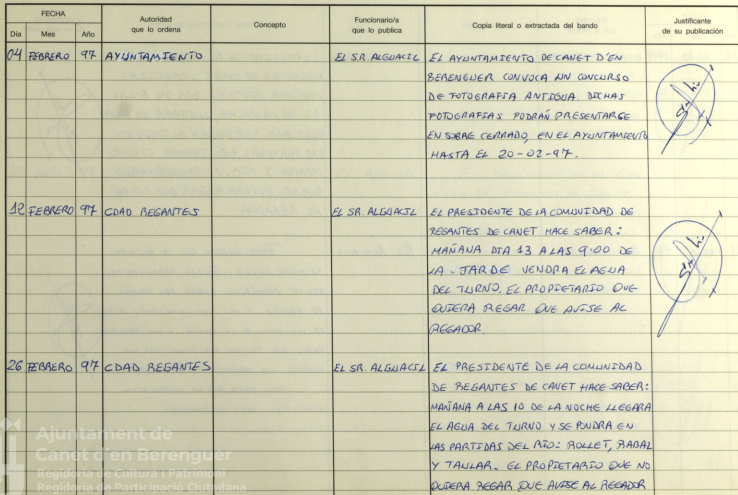 FECHA
Día Mes Año
Autoridad
que lo ordena
Concepto
Funcionario/a
que lo publica
Copia literal o extractada del bando
Justificante
de su publicación
04 FEBRERO 97 AYUNTAMIENTO EL SR. ALGUACIL EL AYUNTAMIENTO DE CANET D'EN
BERENGUER CONVOCA UN CONCURSO
DE FOTOGRAFIA ANTIGUA. DICHAS
FOTOGRAFIAS PODRÁN PRESENTARSE
EN SOBRE CERRADO, EN EL AYUNTAMIENTO
HASTA EL 20-02-97.
12 FEBRERO 97 CDAD REGANTES EL SR ALGUACIL EL PRESIDENTE DE LA COMUNIDAD DE
REGANTES DE CANET HACE SABER:
MAÑANA DIA 13 A LAS 9:00 DE
LA TARDE VENDRA EL AGUA
DEL TURNO. EL PROPIETARIO QUE
QUIERA REGAR QUE AVISE AL
REGADOR.
26 FEBRERO 97 CDAD REGANTES EL SR. ALGUACIL EL PRESIDENTE DE LA COMUNIDAD
DE REGANTES DE CANET HACE SABER:
MAÑANA A LAS 10 DE LA NOCHE LLEGARA
EL AGUA DEL TURNO Y SE PONDRA EN
LAS PARTIDAS DEL RIO: ROLLET, RABAL
Y TAULAR. EL PROPIETARIO QUE NO
QUIERA REGAR QUE AVISE AL REGADOR
Ajuntament de
Canet d'en Berenguer
Regidoria de Cultura i Patrimoni
Regidoria de Participació Ciutadana